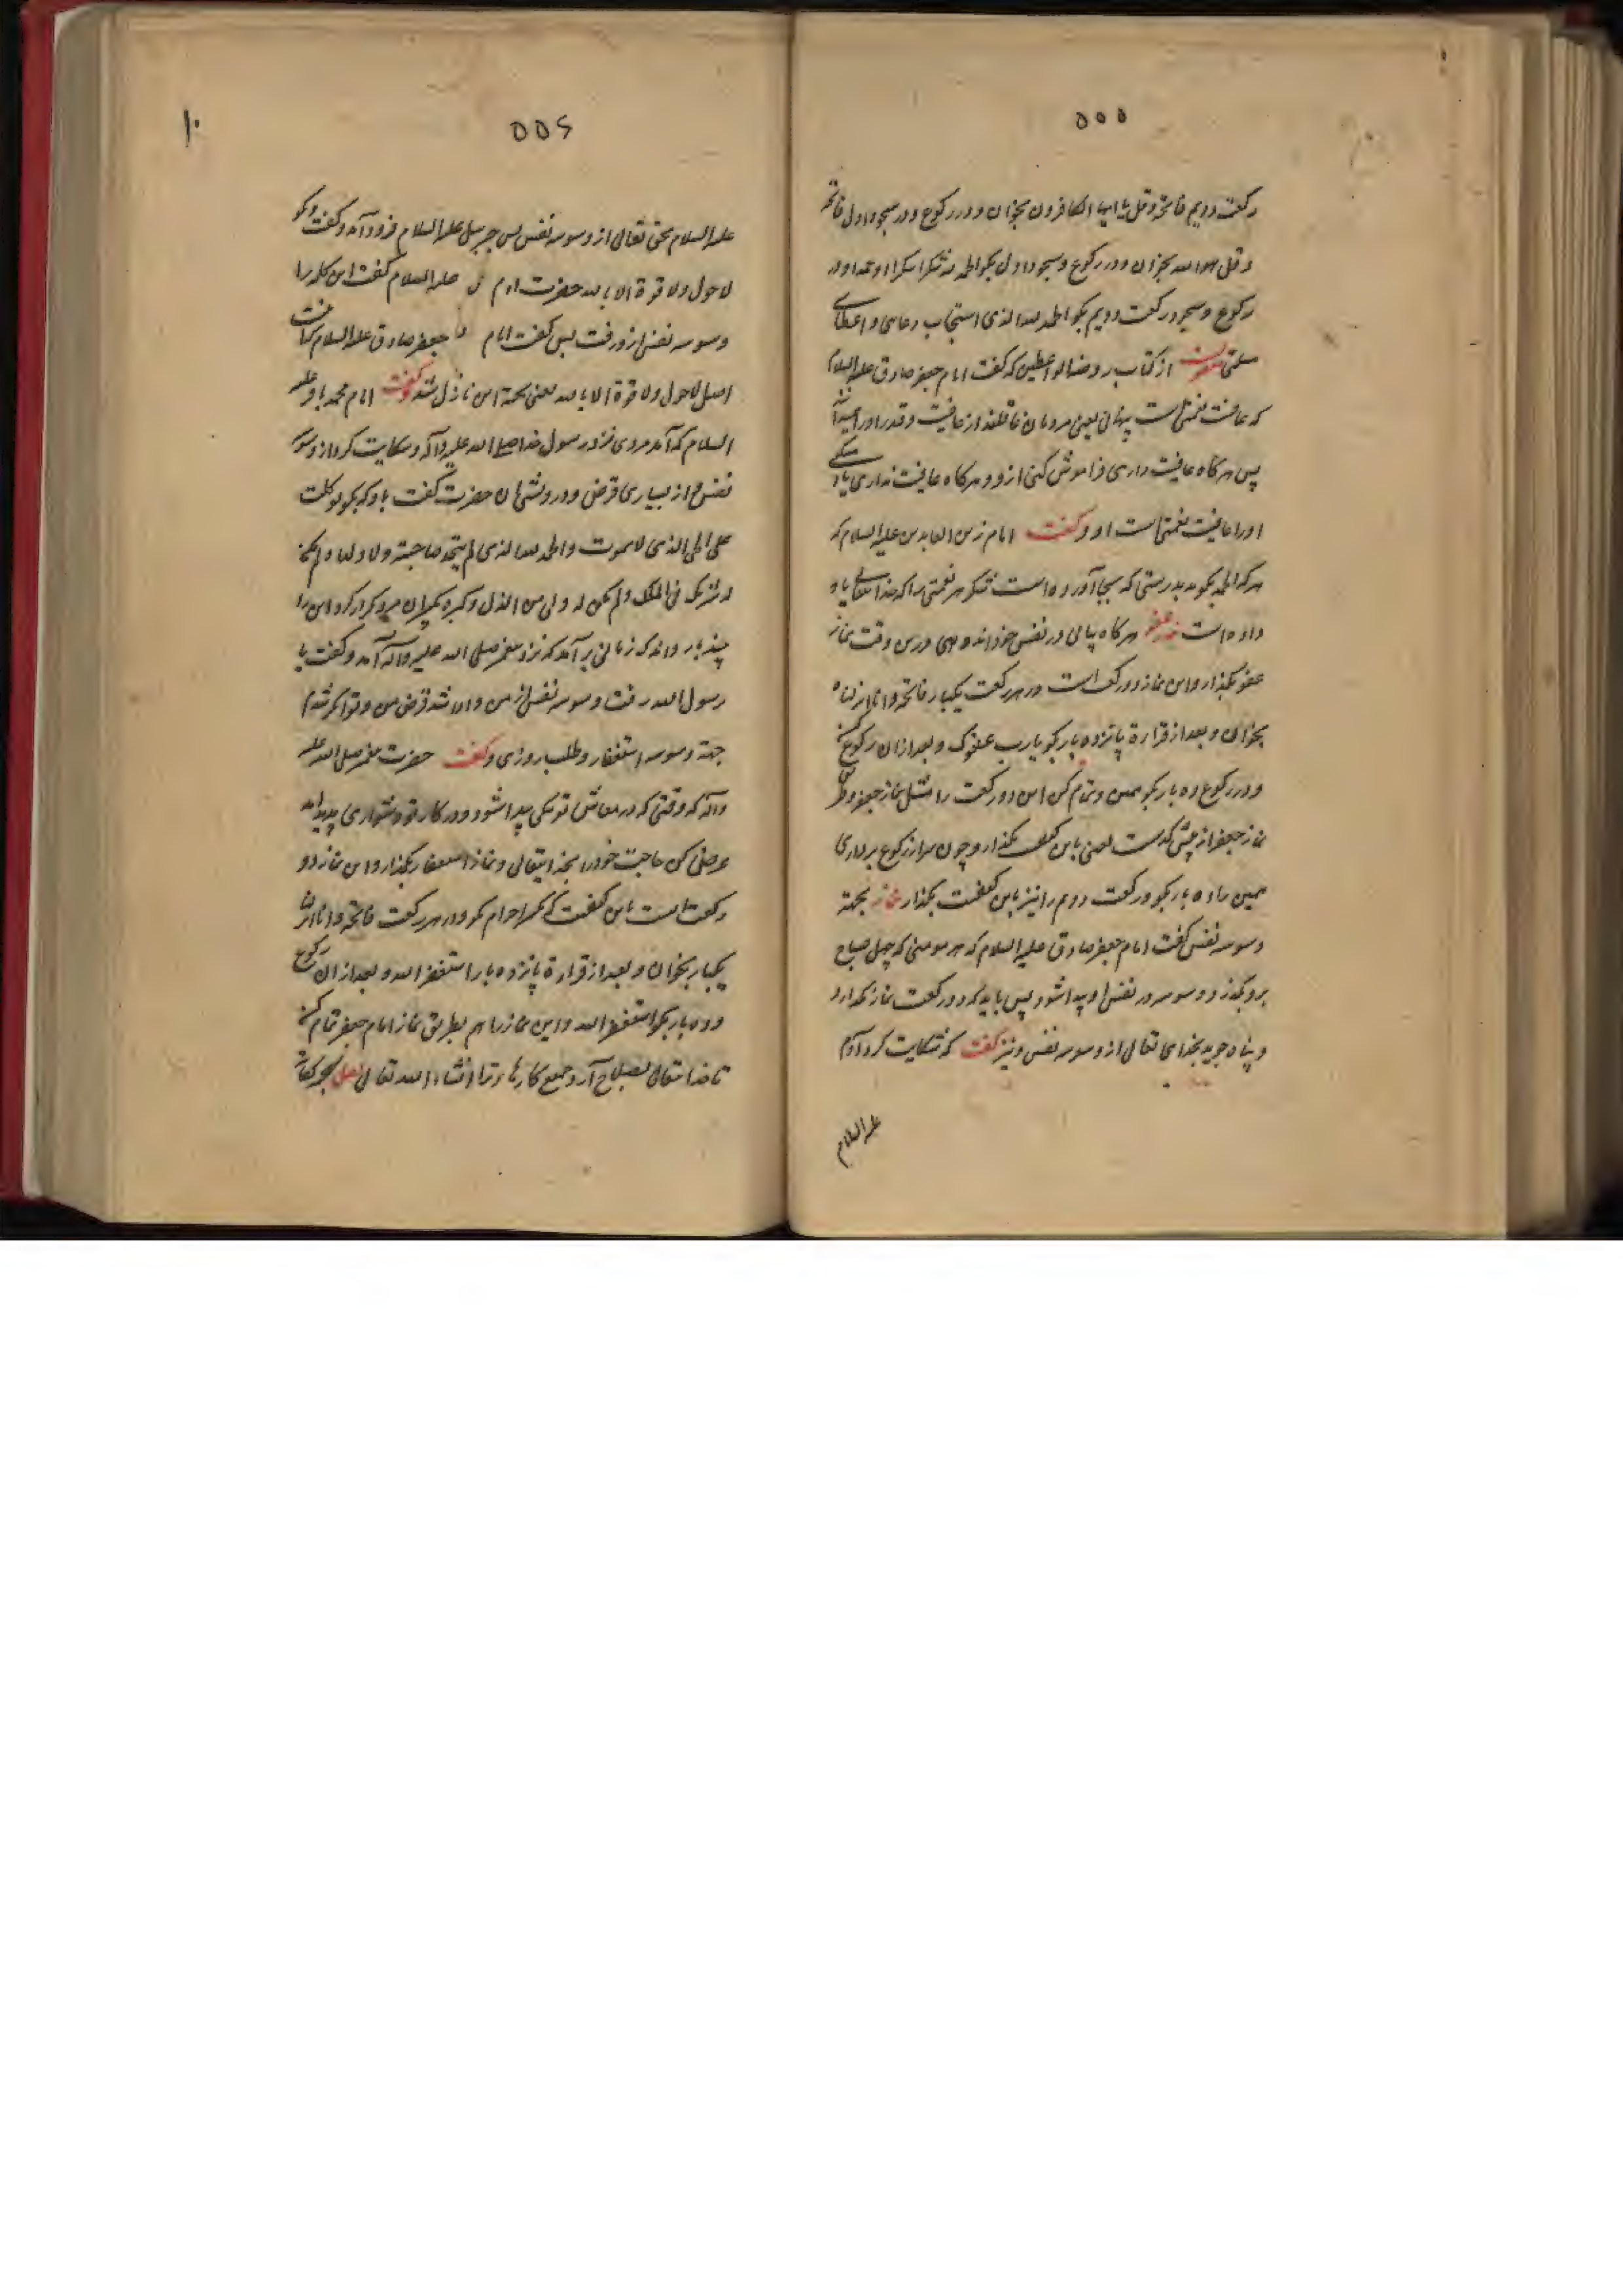 ۵۵۵
رکعت دویم فاتحه و قل یا ایها الکافرون بخوان و در رکوع و در سجود اول فاتحه
و قل هو الله بخوان و در رکوع و سجود اول بگو الحمد لله شکرا شکرا و حمدا و در
رکوع و سجود رکعت دویم بگو الحمد لله الذی استجاب دعائی و اعطانی
مسئلتی از کتاب روضة الواعظین که گفت امام جعفر صادق علیه السلام
که عافیت نعمتی است پنهانی یعنی مردمان غافلند از عافیت و قدر او را نمیدانند
پس هر گاه عافیت داری فراموش کنی ازو و هر گاه عافیت نداری یاد میکنی
او را عافیت نعمتی است و گفت امام زین العابدین علیه السلام که
هر که الحمد بگوید بدرستی که بجا آورده است شکر هر نعمتی را که خدایتعالی باو
داده است نماز عفو هر گاه بیابی در نفس خود اندوهی درین وقت نماز
عفو بگذار و این نماز دو رکعت است در هر رکعت یکبار فاتحه و انا انزلناه
بخوان و بعد از قراءة پانزده بار بگو یا رب عفوک و بعد از ان رکوع کن
و در رکوع ده بار بگو همین و تمام کن این دو رکعت را مثل نماز جعفر و
نماز جعفر از پیش گذشت یعنی باین بگذار و چون سر از رکوع برداری
همین را ده بار بگو و رکعت دوم را نیز باین کیفیت بگذار نماز بجهة
وسوسه نفس گفت امام جعفر صادق علیه السلام که هر مومنی که چهل صباح
برو بگذرد و وسوسه در نفس او پیدا شود پس باید که دو رکعت نماز بگذارد
و پناه جوید بخدای تعالی از وسوسه نفس و نیز گفت که شکایت کرد آدم
علیه السلام
۵۵۶
۱۰
علیه السلام بحق تعالی از وسوسه نفس پس جبرئیل علیه السلام فرود آمد و گفت بگو
لا حول و لا قوة الا بالله حضرت ادم علیه السلام گفت این کلمه را
وسوسه نفس ازو رفت پس گفت امام جعفر صادق علیه السلام
اصل لا حول و لا قوة الا بالله یعنی بجهة این نازل شد و گفت امام محمد باقر علیه
السلام که آمد مردی نزد رسول خدا صلی الله علیه و آله و شکایت کرد از وسوسه
نفس و از بسیاری قرض و درویشی ان حضرت گفت باو که بگو توکلت
علی الحی الذی لا یموت و الحمد لله الذی لم یتخذ صاحبة و لا ولدا و لم یکن
له شریک فی الملک و لم یکن له ولی من الذل و کبره تکبیرا ان مرد مکرر کرد این را
چند بار و اندک زمانی بر آمد که نزد پیغمبر صلی الله علیه و آله آمد و گفت یا
رسول الله رفت وسوسه نفس از من و ادا شد قرض من و توانگر شدم
جهة وسوسه استغفار و طلب روزی و گفت حضرت پیغمبر صلی الله علیه
و آله که وقتی که در معاش تو تنگی پیدا شود و در کار تو دشواری پدید آید
عرض کن حاجت خود را بخدایتعالی و نماز استغفار بگذار و این نماز دو
رکعت است باین کیفیت که تکبیر احرام بگو و در هر رکعت فاتحه و انا انزلنا
یکبار بخوان و بعد از قراءة پانزده بار استغفر الله و بعد از ان رکوع
و ده بار بگو استغفر الله و این نماز را هم بطریق نماز امام جعفر تمام کن
تا خدایتعالی بصلاح آرد جمیع کارهاء ترا انشاء الله تعالی